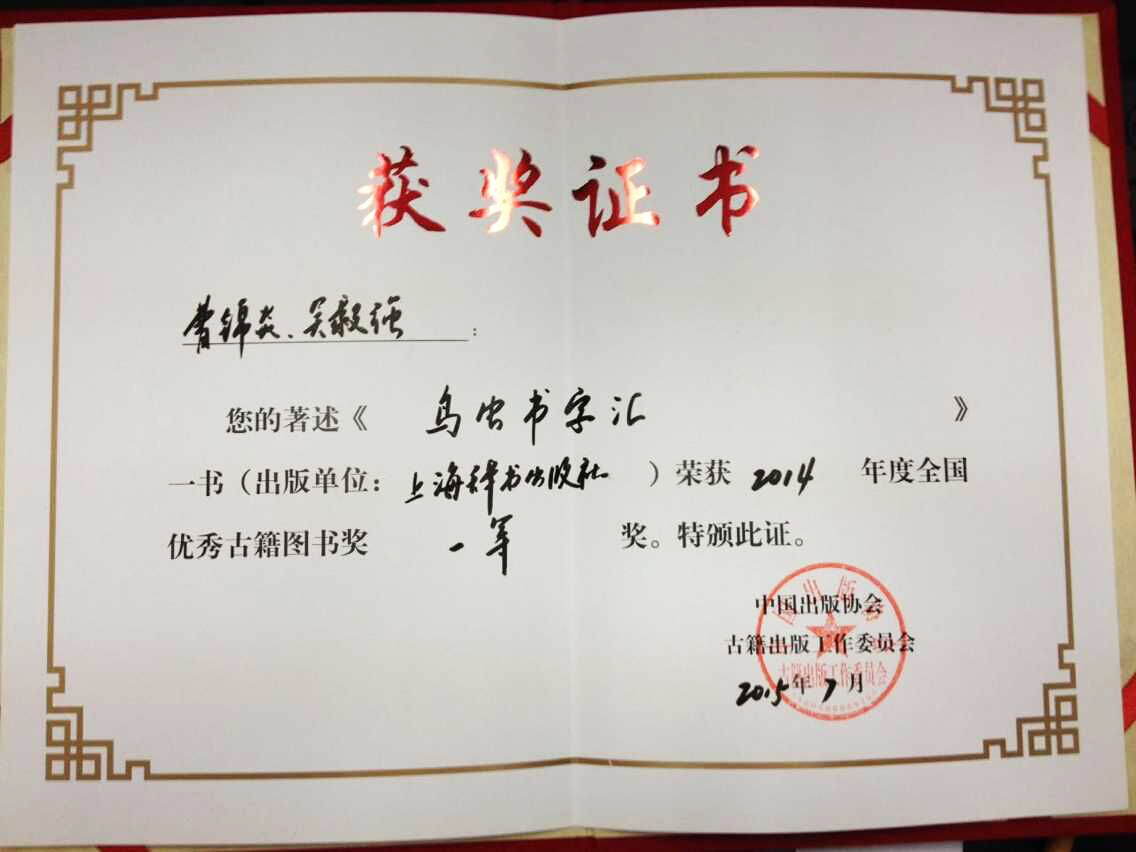 获奖证书
曹锦炎、吴毅强：
您的著述《 鸟虫书字汇 》
一书（出版单位：上海辞书出版社）荣获 2014 年度全国
优秀古籍图书奖 一等 奖。特颁此证。
中国出版协会
古籍出版工作委员会
2015年7月
古籍出版工作委员会